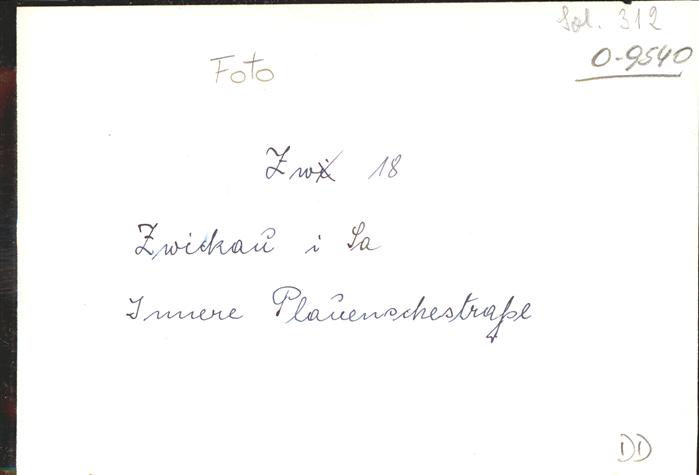 Sol. 312
O-9540
Foto
Zwi 18
Zwickau i Sa
Innere Plauenschestraße
DD